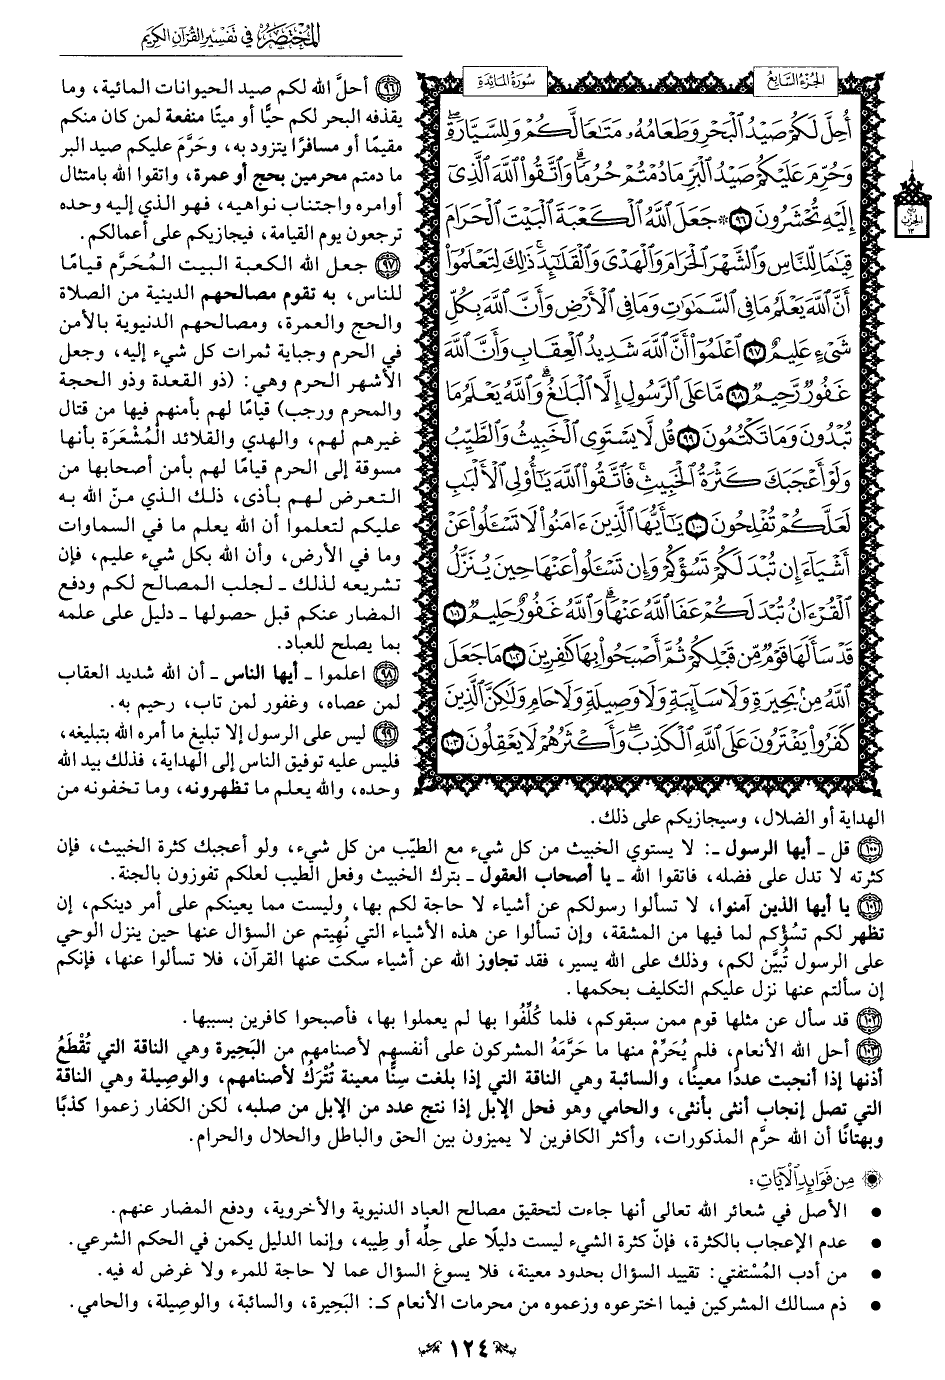 المختصر في تفسير القرآن الكريم
الجزء السابع
سورة المائدة
أُحِلَّ لَكُمْ صَيْدُ ٱلْبَحْرِ وَطَعَامُهُۥ مَتَٰعًا لَّكُمْ وَلِلسَّيَّارَةِۖ
وَحُرِّمَ عَلَيْكُمْ صَيْدُ ٱلْبَرِّ مَا دُمْتُمْ حُرُمًاۗ وَٱتَّقُوا۟ ٱللَّهَ ٱلَّذِىٓ
إِلَيْهِ تُحْشَرُونَ ٩٦ ۞ جَعَلَ ٱللَّهُ ٱلْكَعْبَةَ ٱلْبَيْتَ ٱلْحَرَامَ
قِيَٰمًا لِّلنَّاسِ وَٱلشَّهْرَ ٱلْحَرَامَ وَٱلْهَدْىَ وَٱلْقَلَٰٓئِدَۚ ذَٰلِكَ لِتَعْلَمُوٓا۟
أَنَّ ٱللَّهَ يَعْلَمُ مَا فِى ٱلسَّمَٰوَٰتِ وَمَا فِى ٱلْأَرْضِ وَأَنَّ ٱللَّهَ بِكُلِّ
شَىْءٍ عَلِيمٌ ٩٧ ٱعْلَمُوٓا۟ أَنَّ ٱللَّهَ شَدِيدُ ٱلْعِقَابِ وَأَنَّ ٱللَّهَ
غَفُورٌ رَّحِيمٌ ٩٨ مَّا عَلَى ٱلرَّسُولِ إِلَّا ٱلْبَلَٰغُۗ وَٱللَّهُ يَعْلَمُ مَا
تُبْدُونَ وَمَا تَكْتُمُونَ ٩٩ قُل لَّا يَسْتَوِى ٱلْخَبِيثُ وَٱلطَّيِّبُ
وَلَوْ أَعْجَبَكَ كَثْرَةُ ٱلْخَبِيثِۚ فَٱتَّقُوا۟ ٱللَّهَ يَٰٓأُو۟لِى ٱلْأَلْبَٰبِ
لَعَلَّكُمْ تُفْلِحُونَ ١٠٠ يَٰٓأَيُّهَا ٱلَّذِينَ ءَامَنُوا۟ لَا تَسْـَٔلُوا۟ عَنْ
أَشْيَآءَ إِن تُبْدَ لَكُمْ تَسُؤْكُمْ وَإِن تَسْـَٔلُوا۟ عَنْهَا حِينَ يُنَزَّلُ
ٱلْقُرْءَانُ تُبْدَ لَكُمْ عَفَا ٱللَّهُ عَنْهَاۗ وَٱللَّهُ غَفُورٌ حَلِيمٌ ١٠١
قَدْ سَأَلَهَا قَوْمٌ مِّن قَبْلِكُمْ ثُمَّ أَصْبَحُوا۟ بِهَا كَٰفِرِينَ ١٠٢ مَا جَعَلَ
ٱللَّهُ مِنۢ بَحِيرَةٍ وَلَا سَآئِبَةٍ وَلَا وَصِيلَةٍ وَلَا حَامٍ وَلَٰكِنَّ ٱلَّذِينَ
كَفَرُوا۟ يَفْتَرُونَ عَلَى ٱللَّهِ ٱلْكَذِبَۖ وَأَكْثَرُهُمْ لَا يَعْقِلُونَ ١٠٣
ربع
الحزب
١٣
٩٦ أحلَّ الله لكم صيد الحيوانات المائية، وما
يقذفه البحر لكم حيًّا أو ميتًا منفعة لمن كان منكم
مقيمًا أو مسافرًا يتزود به، وحَرَّمَ عليكم صيد البر
ما دمتم محرمين بحج أو عمرة، واتقوا الله بامتثال
أوامره واجتناب نواهيه، فهو الذي إليه وحده
ترجعون يوم القيامة، فيجازيكم على أعمالكم.
٩٧ جعل الله الكعبة البيت المُحَرَّم قيامًا
للناس، به تقوم مصالحهم الدينية من الصلاة
والحج والعمرة، ومصالحهم الدنيوية بالأمن
في الحرم وجباية ثمرات كل شيء إليه، وجعل
الأشهر الحرم وهي: (ذو القعدة وذو الحجة
والمحرم ورجب) قيامًا لهم بأمنهم فيها من قتال
غيرهم لهم، والهدي والقلائد المُشْعَرَة بأنها
مسوقة إلى الحرم قيامًا لهم بأمن أصحابها من
التعرض لهم بأذى، ذلك الذي منّ الله به
عليكم لتعلموا أن الله يعلم ما في السماوات
وما في الأرض، وأن الله بكل شيء عليم، فإن
تشريعه لذلك ـ لجلب المصالح لكم ودفع
المضار عنكم قبل حصولها ـ دليل على علمه
بما يصلح للعباد.
٩٨ اعلموا ـ أيها الناس ـ أن الله شديد العقاب
لمن عصاه، وغفور لمن تاب، رحيم به.
٩٩ ليس على الرسول إلا تبليغ ما أمره الله بتبليغه،
فليس عليه توفيق الناس إلى الهداية، فذلك بيد الله
وحده، والله يعلم ما تظهرونه، وما تخفونه من
الهداية أو الضلال، وسيجازيكم على ذلك.
١٠٠ قل ـ أيها الرسول ـ: لا يستوي الخبيث من كل شيء مع الطيّب من كل شيء، ولو أعجبك كثرة الخبيث، فإن
كثرته لا تدل على فضله، فاتقوا الله ـ يا أصحاب العقول ـ بترك الخبيث وفعل الطيب لعلكم تفوزون بالجنة.
١٠١ يا أيها الذين آمنوا، لا تسألوا رسولكم عن أشياء لا حاجة لكم بها، وليست مما يعينكم على أمر دينكم، إن
تظهر لكم تسُؤْكم لما فيها من المشقة، وإن تسألوا عن هذه الأشياء التي نُهيتم عن السؤال عنها حين ينزل الوحي
على الرسول تُبيَّن لكم، وذلك على الله يسير، فقد تجاوز الله عن أشياء سكت عنها القرآن، فلا تسألوا عنها، فإنكم
إن سألتم عنها نزل عليكم التكليف بحكمها.
١٠٢ قد سأل عن مثلها قوم ممن سبقوكم، فلما كُلِّفُوا بها لم يعملوا بها، فأصبحوا كافرين بسببها.
١٠٣ أحل الله الأنعام، فلم يُحَرِّمْ منها ما حَرَّمَهُ المشركون على أنفسهم لأصنامهم من البَحِيرة وهي الناقة التي تُقْطَعُ
أذنها إذا أنجبت عددًا معينًا، والسائبة وهي الناقة التي إذا بلغت سِنًّا معينة تُتْرَك لأصنامهم، والوصِيلة وهي الناقة
التي تصل إنجاب أنثى بأنثى، والحامي وهو فحل الإبل إذا نتج عدد من الإبل من صلبه، لكن الكفار زعموا كذبًا
وبهتانًا أن الله حرَّم المذكورات، وأكثر الكافرين لا يميزون بين الحق والباطل والحلال والحرام.
من فوائد الآيات:
• الأصل في شعائر الله تعالى أنها جاءت لتحقيق مصالح العباد الدنيوية والأخروية، ودفع المضار عنهم.
• عدم الإعجاب بالكثرة، فإنّ كثرة الشيء ليست دليلًا على حِلِّه أو طِيبه، وإنما الدليل يكمن في الحكم الشرعي.
• من أدب المُسْتفتي: تقييد السؤال بحدود معينة، فلا يسوغ السؤال عما لا حاجة للمرء ولا غرض له فيه.
• ذم مسالك المشركين فيما اخترعوه وزعموه من محرمات الأنعام كـ: البَحِيرة، والسائبة، والوصِيلة، والحامي.
١٢٤